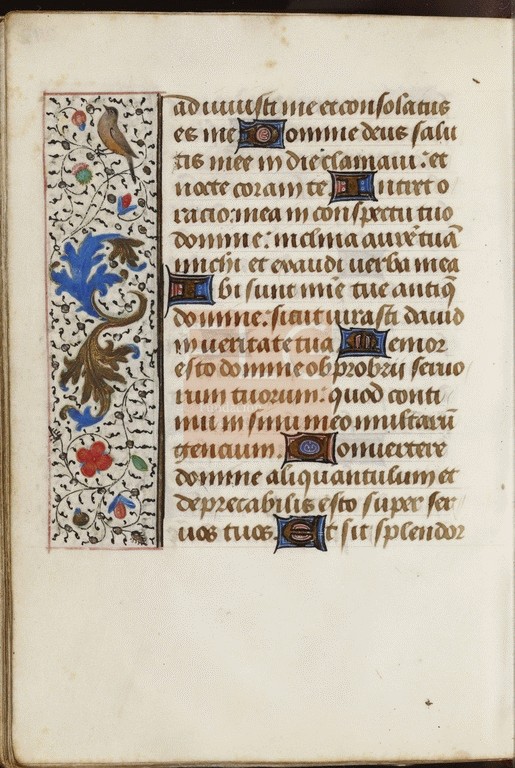 adiuuisti me et consolatus
es me Domine deus salu
tis mee in die clamaui: et
nocte coram te Intret o
racio: mea in conspectu tuo
domine: inclina aurẽ tuã
michi et exaudi uerba mea
Ubi sunt mīe tue antiq̄
domine: sicut iurasti dauid
in ueritate tua Memor
esto domine obprobrii seruo
rum tuorum: quod conti
nui in sinu meo multarū
gencium. Conuertere
domine aliquantulum et
deprecabilis esto super ser
uos tuos. Et sit splendor